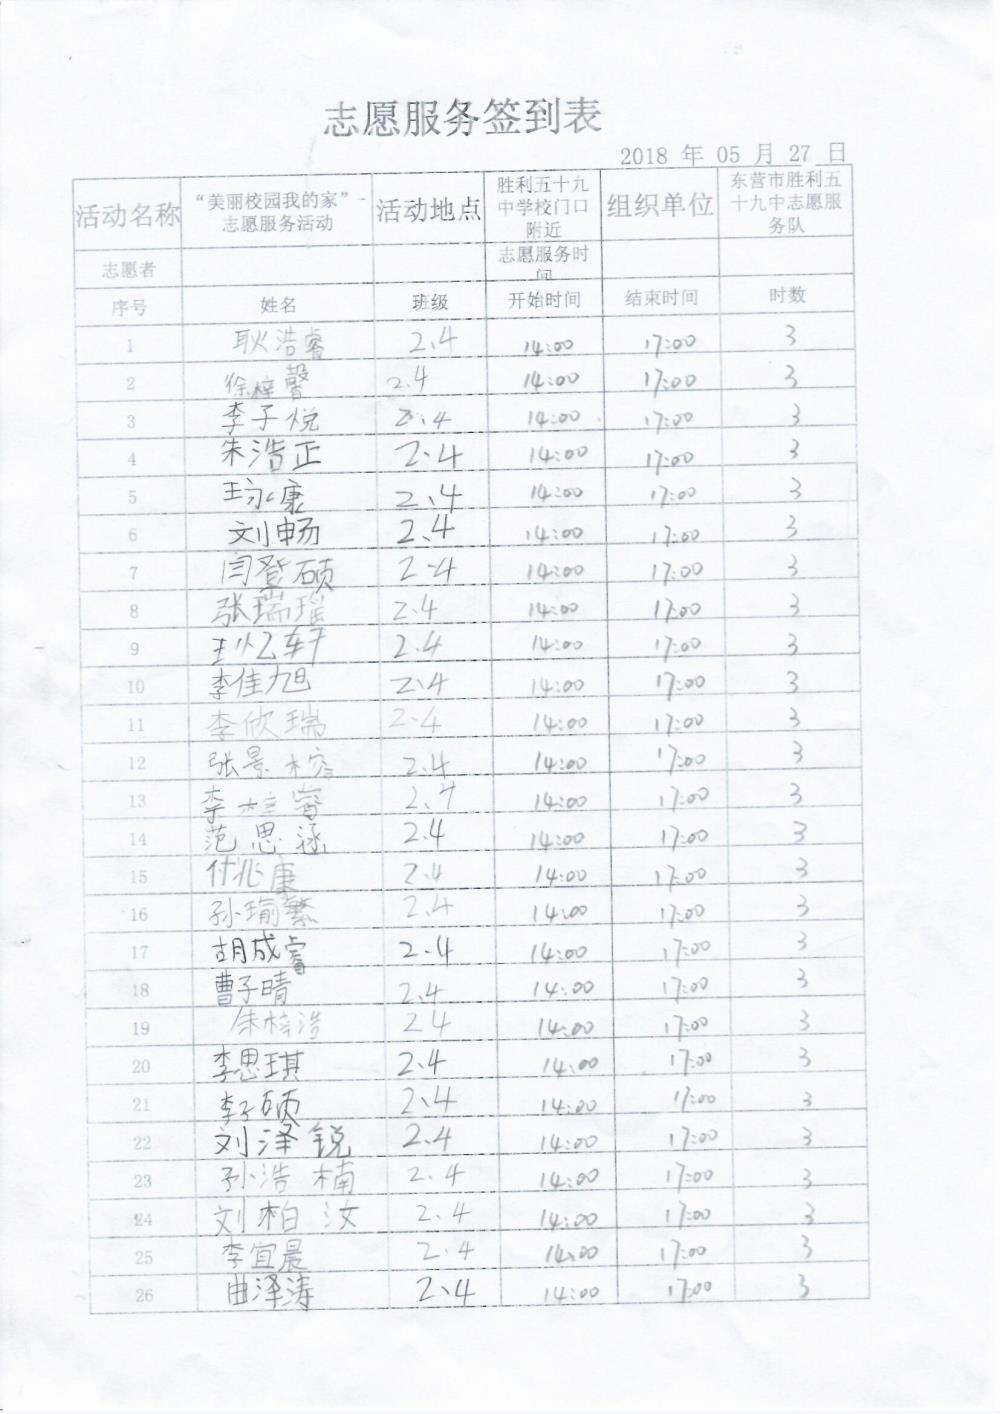 志愿服务签到表
2018 年 05 月 27 日
活动名称 “美丽校园我的家”-志愿服务活动 活动地点 胜利五十九中学校门口附近 组织单位 东营市胜利五十九中志愿服务队
志愿者 志愿服务时间
序号 姓名 班级 开始时间 结束时间 时数
1 耿浩睿 2.4 14:00 17:00 3
2 徐梓馨 2.4 14:00 17:00 3
3 李子悦 2.4 14:00 17:00 3
4 朱浩正 2.4 14:00 17:00 3
5 王永康 2.4 14:00 17:00 3
6 刘畅 2.4 14:00 17:00 3
7 闫登硕 2.4 14:00 17:00 3
8 张瑞瑶 2.4 14:00 17:00 3
9 王忆轩 2.4 14:00 17:00 3
10 李佳旭 2.4 14:00 17:00 3
11 李欣瑞 2.4 14:00 17:00 3
12 张景榕 2.4 14:00 17:00 3
13 李梓睿 2.4 14:00 17:00 3
14 范思涵 2.4 14:00 17:00 3
15 付兆康 2.4 14:00 17:00 3
16 孙瑜繁 2.4 14:00 17:00 3
17 胡成睿 2.4 14:00 17:00 3
18 曹子晴 2.4 14:00 17:00 3
19 朱梓浩 2.4 14:00 17:00 3
20 李思琪 2.4 14:00 17:00 3
21 李子硕 2.4 14:00 17:00 3
22 刘泽锐 2.4 14:00 17:00 3
23 孙浩楠 2.4 14:00 17:00 3
24 刘柏汝 2.4 14:00 17:00 3
25 李宜晨 2.4 14:00 17:00 3
26 曲泽涛 2.4 14:00 17:00 3